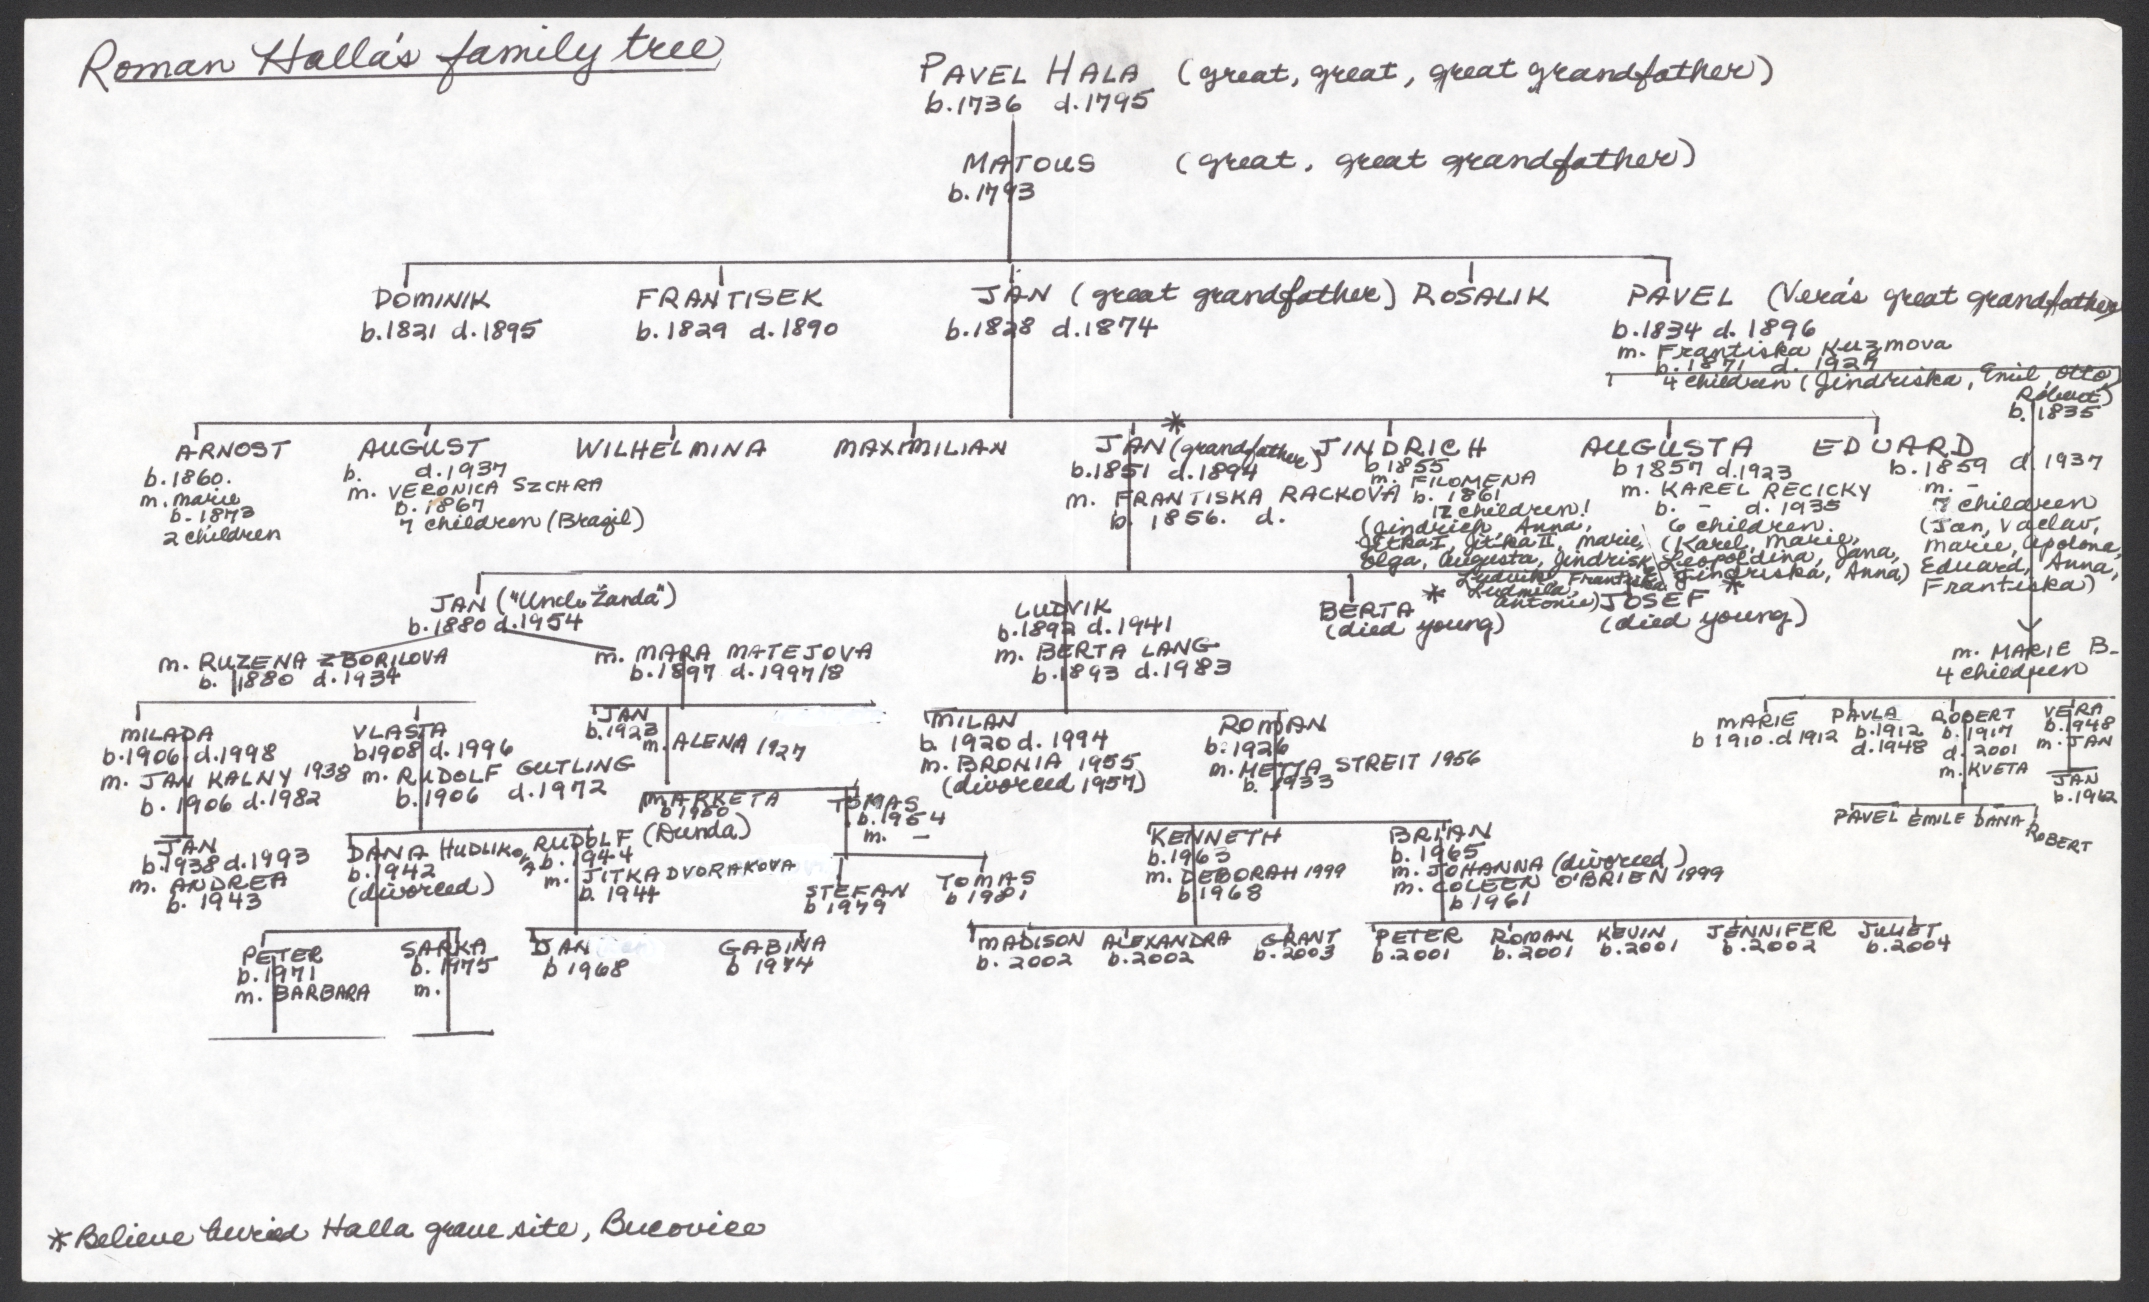 Roman Halla's family tree
PAVEL HALA (great, great, great grandfather)
b.1736 d.1795
MATOUS (great, great grandfather)
b.1793
DOMINIK
b.1821 d.1895
FRANTISEK
b.1829 d.1890
JAN (great grandfather)
b.1828 d.1874
ROSALIK
PAVEL (Vera's great grandfather
b.1834 d. 1896
m. Frantiska Kuzmova
b. 1871 d. 1927
4 children (Jindriska, Emil, Otto,
Robert)
b. 1835
ARNOST
b.1860.
m. marie
b. 1873
2 children
AUGUST
b. d.1937
m. VERONICA SZCHRA
b. 1867
7 children (Brazil)
WILHELMINA
MAXMILIAN
*
JAN (grandfather)
b.1851 d.1894
m. FRANTISKA RACKOVA
b. 1856. d.
JINDRICH
b 1855
m. FILOMENA
b. 1861
12 children!
(Jindrich, Anna,
Jitka I, Jitka II, marie,
Olga, Augusta, Jindrisk
Ludvik, Frantiska
Ludmila,
Antonie)
AUGUSTA
b 1857 d.1923
m. KAREL RECICKY
b. - d. 1935
6 children.
(Karel, Marie,
Leopoldina, Jana,
Jindriska, Anna)
EDUARD
b. 1859 d. 1937
m. -
7 children
(Jan, Vaclav,
Marie, Apolona,
Eduard, Anna,
Frantiska)
JAN ("Uncle Žanda")
b.1880 d.1954
m. RUZENA ZBORILOVA
b. 1880 d.1934
m. MARA MATEJOVA
b.1897 d.1997/8
LUDVIK
b.1892 d.1941
m. BERTA LANG
b.1893 d.1983
BERTA *
(died young)
JOSEF *
(died young)
m. MARIE B-
4 children
MILADA
b.1906 d.1998
m. JAN KALNY 1938
b. 1906 d.1982
VLASTA
b1908 d.1996
m. RUDOLF GUTLING
b.1906 d.1972
JAN
b.1923
m. ALENA 1927
MILAN
b. 1920 d. 1994
m. BRONIA 1955
(divorced 1957)
ROMAN
b.1926
m. METTA STREIT 1956
b. 1933
MARIE
b 1910. d 1912
PAVLA
b.1912
d.1948
ROBERT
b.1917
d. 2001
m. KVETA
VERA
b.1948
m. JAN
JAN
b.1962
PAVEL EMILE DANA ROBERT
JAN
b.1938 d.1993
m. ANDREA
b. 1943
DANA HUDLIKOVA
b.1942
(divorced)
RUDOLF
b. 1944
m. JITKA DVORAKOVA
b. 1944
MARKETA
b 1950
(Dunda)
TOMAS
b.1954
m. -
STEFAN
b 1979
TOMAS
b 1981
KENNETH
b.1963
m. DEBORAH 1999
b 1968
BRIAN
b. 1965
m. JOHANNA (divorced)
m. COLEEN O'BRIEN 1999
b 1961
PETER
b.1971
m. BARBARA
SARKA
b. 1975
m.
JAN
b 1968
GABINA
b 1974
MADISON
b. 2002
ALEXANDRA
b.2002
GRANT
b.2003
PETER
b.2001
ROMAN
b.2001
KEVIN
b.2001
JENNIFER
b.2002
JULIET
b.2004
*Believe buried Halla grave site, Bucovice